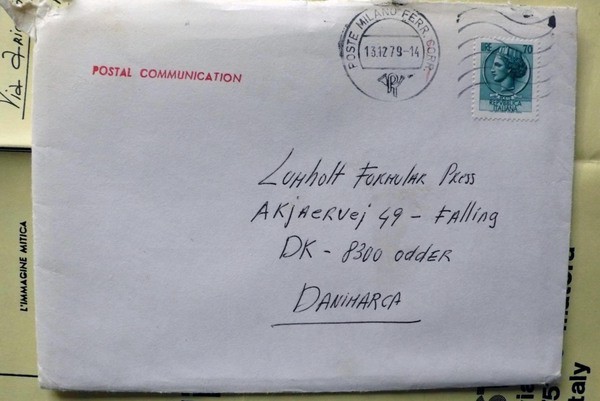 POSTAL COMMUNICATION
POSTE MILANO FERR. CORR.
13.12.79-14
70
REPUBBLICA
ITALIANA
Lomholt Formular Press
Akjaervej 49 - Falling
DK - 8300 odder
DANIMARCA
L'IMMAGINE MITICA
Via
75
taly